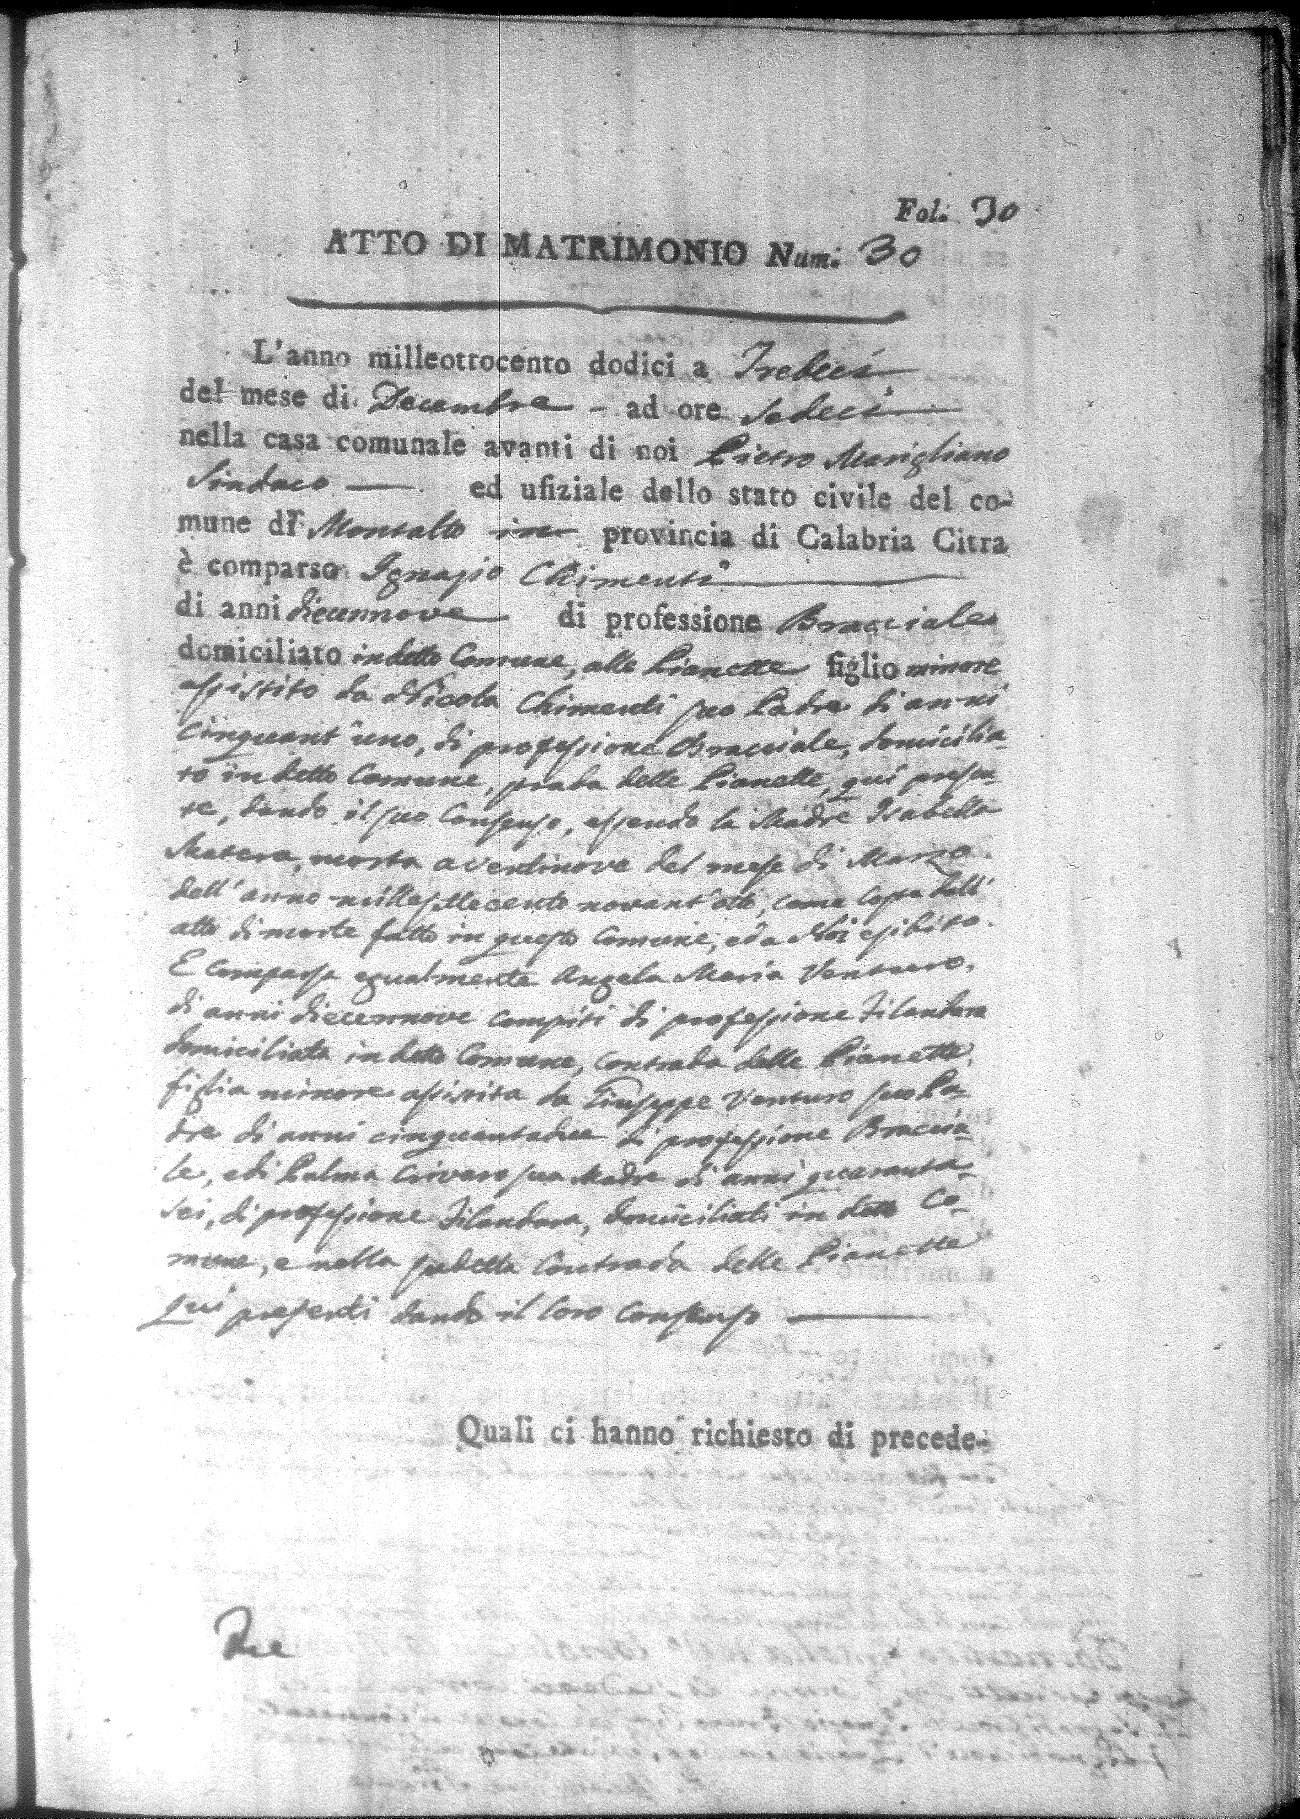 Fol. 30
ATTO DI MATRIMONIO Num. 30
L'anno milleottocento dodici a Tredeci
del mese di Decembre - ad ore Sedeci
nella casa comunale avanti di noi Pietro Marigliano
Sindaco ed ufiziale dello stato civile del co-
mune di Montalto in provincia di Calabria Citra
è comparso Ignazio Chimenti
di anni diecennove di professione Bracciale
domiciliato in detto Comune, alle Pianette figlio minore
assistito da Nicola Chimenti suo Padre di anni
Cinquant'uno, di professione Bracciale, domicilia-
to in detto Comune, delle Pianette, qui presen
te, dando il suo Consenso, essendo la Madre Isabella
Matera, morta a ventinove del mese di Marzo
dell'anno millesettecento novant'otto, come copia dell'
atto di morte fatto in questo Comune, ed a Noi esibito.
E comparsa egualmente Angela Maria Venturo,
di anni diecennove compiti di professione Filandara
domiciliata in detto Comune, contrada delle Pianette,
figlia minore assistita da Giuseppe Venturo suo Pa-
dre di anni cinquantadue di professione Braccia-
le, e di Palma Crivaro sua Madre di anni quaranta-
sei, di professione Filandara, domiciliati in detto Co-
mune, e nella sudetta Contrada delle Pianette
qui presenti dando il loro consenso
Quali ci hanno richiesto di precede-